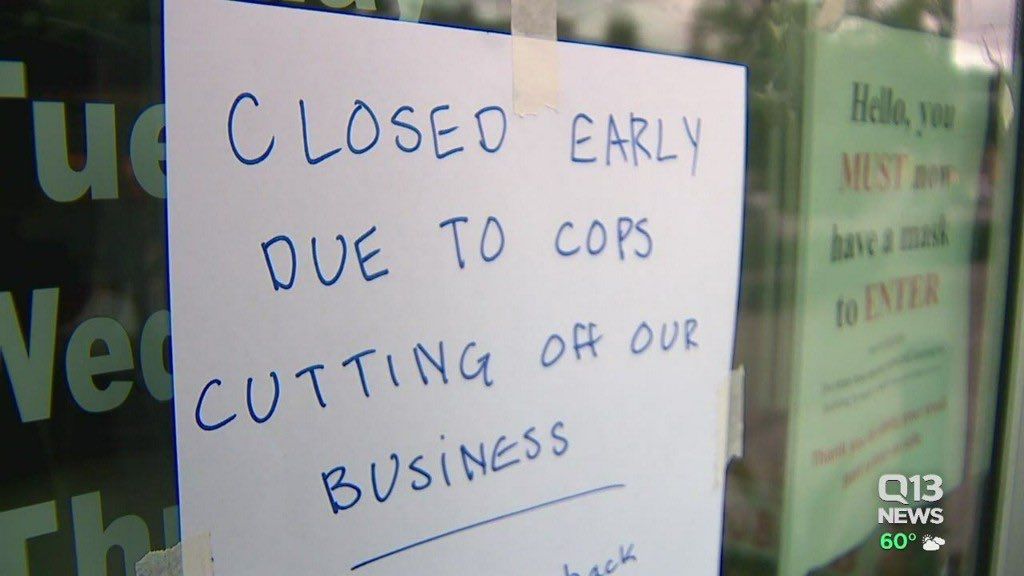 Tue
Wed
Th
CLOSED EARLY
DUE TO COPS
CUTTING OFF OUR
BUSINESS
back
Hello, you
MUST now
have a mask
to ENTER
Q13
NEWS
60°